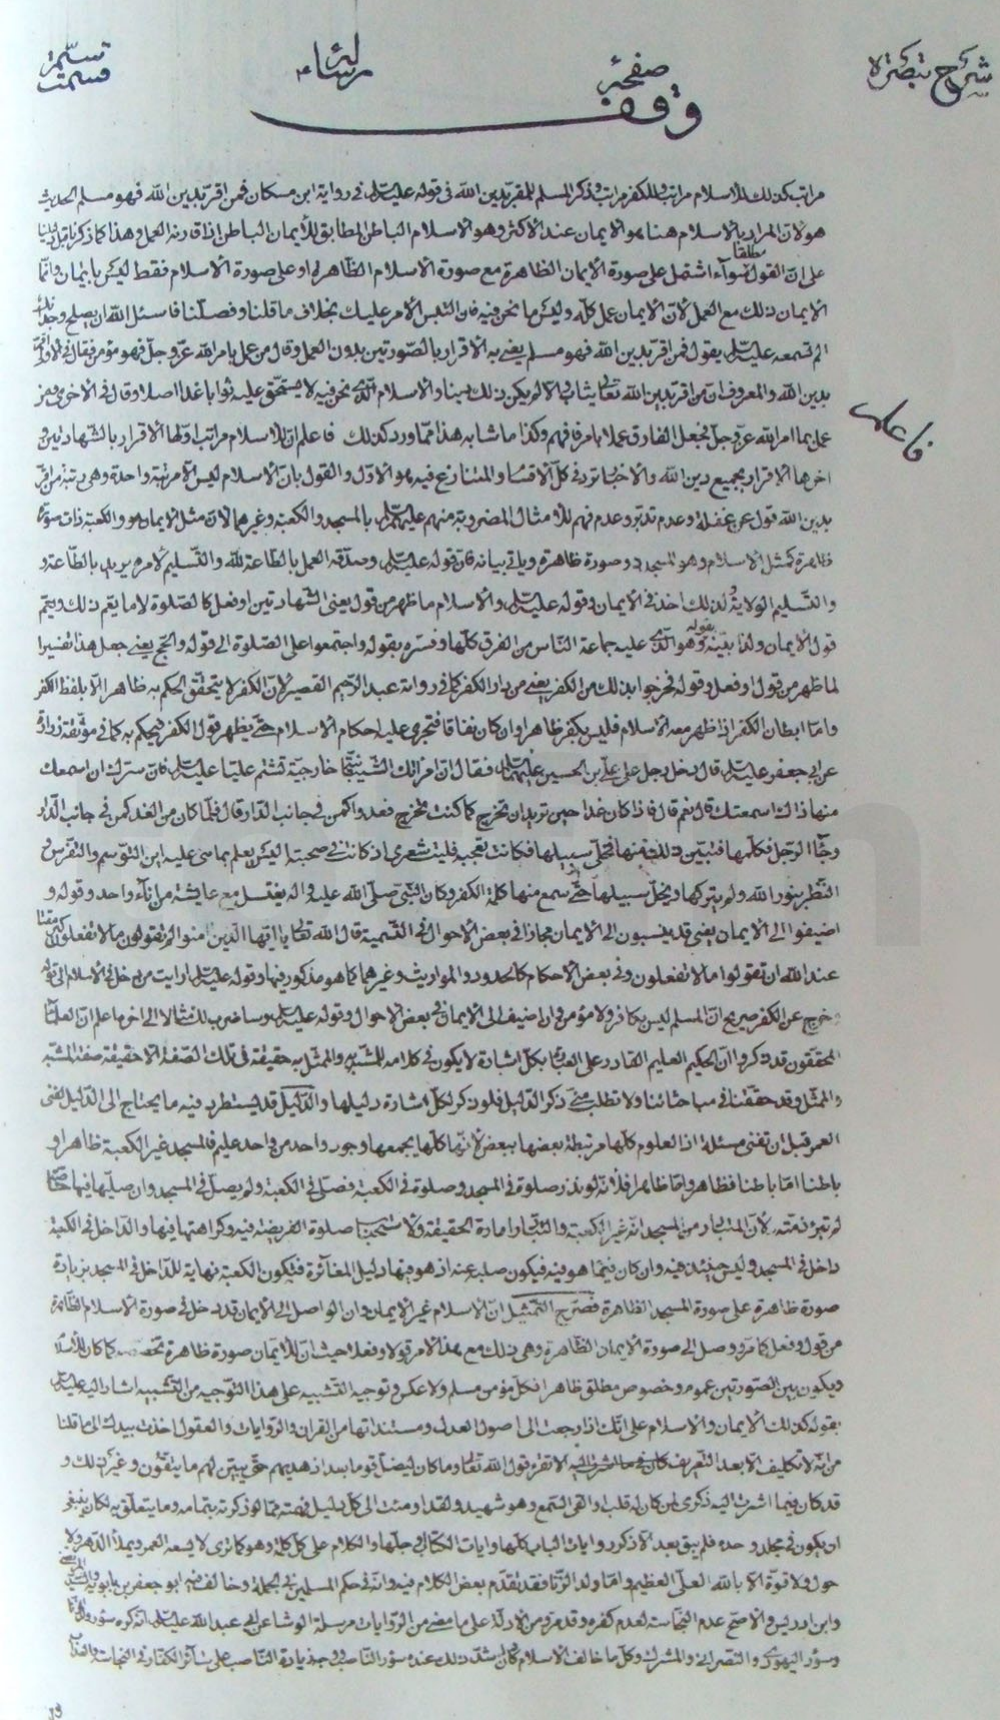 شرح تبصرة
صفحة
رسالة
قسمت
وقف
مراتب كذلك للاسلام مراتب وللكفر مراتب وذكر المسلم للمقر بدين الله في قوله عليه السلم في رواية ابن مسكان فمن اقر بدين الله فهو مسلم الحديث
هو لان المراد بالاسلام هنا هو الايمان عند الاكثر وهو الاسلام الباطن المطابق للايمان الباطن اذا قارنه العمل وهذا كما ذكرنا قبل
على ان القول مطلقا سواء اشتمل على صورة الايمان الظاهرة مع صورة الاسلام الظاهرة او على صورة الاسلام فقط ليس بايمان وانما
الايمان ذلك مع العمل لان الايمان عمل كله وليس ما نحن فيه فان التبس الامر عليك بخلاف ما قلنا وفصلنا فاسئل الله ان يصلح وجدانك
الم تسمعه عليه السلم يقول فمن اقر بدين الله فهو مسلم يعني به الاقرار بالصورتين بدون العمل وقال من عمل بامر الله عز وجل فهو مؤمن فقال في الاول
بدين الله والمعروف ان من اقر بدين الله تعالى يثاب لم يكن ذلك والاسلام الذي نحن فيه لا يستحق عليه ثوابا غدا اصلا وقال في الاخرى ومن
عمل بما امر الله عز وجل فجعل الفارق عملا بامر فافهم وكذا ما شابه هذا مما ورد كذلك فاعلم ان للاسلام مراتب اولها الاقرار بالشهادتين و
فاعلم
اخرها الاقرار بجميع دين الله والاخبار ترد في كل الاقسام والمتنازع فيه هو الاول والقول بان الاسلام ليس الا مرتبة واحدة وهي رتبة من اقر
بدين الله قول عن غفلة وعدم تدبر وعدم فهم للامثال المضروبة منهم عليهم السلم بالمسجد والكعبة وغيرهما لان مثل الايمان هو والكعبة ذات صورة
ظاهرة كمثل الاسلام وهو المسجد وصورة ظاهرة وياتي بيانه فان قوله عليه السلم وصدقه العمل بالطاعة لله والتسليم لامره يريد بالطاعة و
والتسليم الولاية ولذلك اخذ في الايمان وقوله عليه السلم والاسلام ما ظهر من قول يعني الشهادتين او فعل كالصلوة لا ما يعم ذلك ويتم
قول الايمان ولذا بينه بقوله وهو الذي عليه جماعة الناس من الفرق كلها وفسره بقوله واجتمعوا على الصلوة الى قوله والحج يعني جعل هذا تفسيرا
لما ظهر من قول او فعل وقوله فخرجوا بذلك من الكفر يعني من دار الكفر كما في رواية عبد الرحيم القصير لان الكفر لا يتحقق الحكم به ظاهرا الا بلفظ الكفر
واما ابطان الكفر اذا ظهر معه الاسلام فليس بكفر ظاهرا وان كان نفاقا فتجري عليه احكام الاسلام حتى يظهر قول الكفر فيحكم به كما في موثقة زرارة
عن ابي جعفر عليه السلم قال دخل رجل على علي بن الحسين عليهما السلم فقال ان امراتك الشيبانية خارجية تشتم عليا عليه السلم فان سرك ان اسمعك
منها ذاك اسمعتك قال نعم قال فاذا كان غدا حين تريد ان تخرج كما كنت تخرج فعد واكمن في جانب الدار قال فلما كان من الغد كمن في جانب الدار
وجاء الرجل فكلمها فتبين ذلك منها فخلى سبيلها فكانت تعجبه فليت شعري اذ كانت في صحبته اليس يعلم بما هي عليه اين التوسم والتفرس و
النظر بنور الله ولم يتركها ويخل سبيلها حتى سمع منها كلمة الكفر وكان النبي صلى الله عليه واله يغتسل مع عايشة من اناء واحد وقوله و
اضيفوا الى الايمان يعني قد ينسبون الى الايمان مجازا في بعض الاحوال في التسمية قال الله تعالى يا ايها الذين امنوا لم تقولون ما لا تفعلون كبر مقتا
عند الله ان تقولوا ما لا تفعلون وفي بعض الاحكام كالحدود والمواريث وغيرهما كما هو مذكور فيها وقوله عليه السلم ارايت من دخل في الاسلام الى قوله
وخرج عن الكفر صريح ان المسلم ليس بكافر ولا مؤمن وان اضيف الى الايمان في بعض الاحوال وقوله عليه السلم وساضرب لك مثالا الى اخره اعلم ان العلماء
المحققون قد ذكروا ان الحكيم العليم القادر على العبارة بكل اشارة لا يكون في كلامه للمشبه والممثل به حقيقة في تلك الصفة الا حقيقة صفة المشبه
والممثل وقد حققنا في مباحثاتنا ولا تطلب مني ذكر الدليل فلو ذكر لكل اشارة دليلها والدليل قد يستطرد فيه ما يحتاج الى الدليل لفنى
العمر قبل ان تفنى مسئلة اذ العلوم كلها مرتبطة بعضها ببعض لانها كلها يجمعها وجود واحد من واحد عليم فالمسجد غير الكعبة ظاهرا و
باطنا اما باطنا فظاهر واما ظاهرا فلانه لو نذر صلوة في المسجد وصلوة في الكعبة فصلى في الكعبة ولم يصل في المسجد وان صليها فيها خاصة
لم تبرء ذمته لان المتبادر من المسجد انه غير الكعبة والتبادر امارة الحقيقة ولاستحباب صلوة الفريضة فيه وكراهتها فيها والداخل في الكعبة
داخل في المسجد وليس حينئذ فيه وان كان فيما هو فيه فيكون صلبه عنه اذ هو فيها دليل المغائرة فيكون الكعبة نهاية للداخل في المسجد بزيادة
صورة ظاهرة على صورة المسجد الظاهرة فصريح التمثيل ان الاسلام غير الايمان وان الواصل الى الايمان قد دخل في صورة الاسلام الظاهرة
من قول وفعل كما مر ووصل الى صورة الايمان الظاهرة وهي ذلك مع هذا الامر قولا وفعلا حيث ان للايمان صورة ظاهرة تخصه كما كان للاسلام
ويكون بين الصورتين عموم وخصوص مطلق ظاهرا فكل مؤمن مسلم ولا عكس وتوجيه التشبيه على هذا التوجيه من التشبيه اشار اليه عليه السلم
بقوله كذلك الايمان والاسلام على انك اذا رجعت الى اصول العدل ومستنداتها من القران والروايات والعقول اخذت بيدك الى ما قلنا
من انه لا تكليف الا بعد التعريف الا تقرء قول الله تعالى وما كان الله ليضل قوما بعد اذ هديهم حتى يبين لهم ما يتقون وغير ذلك و
قد كان فيما اشرت اليه ذكرى لمن كان له قلب او القى السمع وهو شهيد ولقد اومئت الى كل دليل فهمته مما لو ذكرته بتمامه وما يتعلق به لكان ينبغي
ان يكون في مجلد وحده فلم يبق بعد الا ذكر روايات الباب كلها وايات الكتاب جلها والكلام على كل كلمة وهو كما ترى لا يسعه العمر ويملأ الدهر ولا
حول ولا قوة الا بالله العلي العظيم واما ولد الزنا فقد تقدم بعض الكلام فيه وانه في حكم المسلمين في الجملة وخالف فيه ابو جعفر بن بابويه والسيد المرتضى
وابن ادريس والاصح عدم النجاسة لعدم كفره وقد مر من الادلة على ما مضى من الروايات مرسلة الوشا عن ابي عبد الله عليه السلم انه كره سؤر ولد الزنا
وسؤر اليهودي والنصراني والمشرك وكل ما خالف الاسلام وكان اشد ذلك عنده سؤر الناصب وفي زيادة الناصب على سائر الكفار في النجاسة